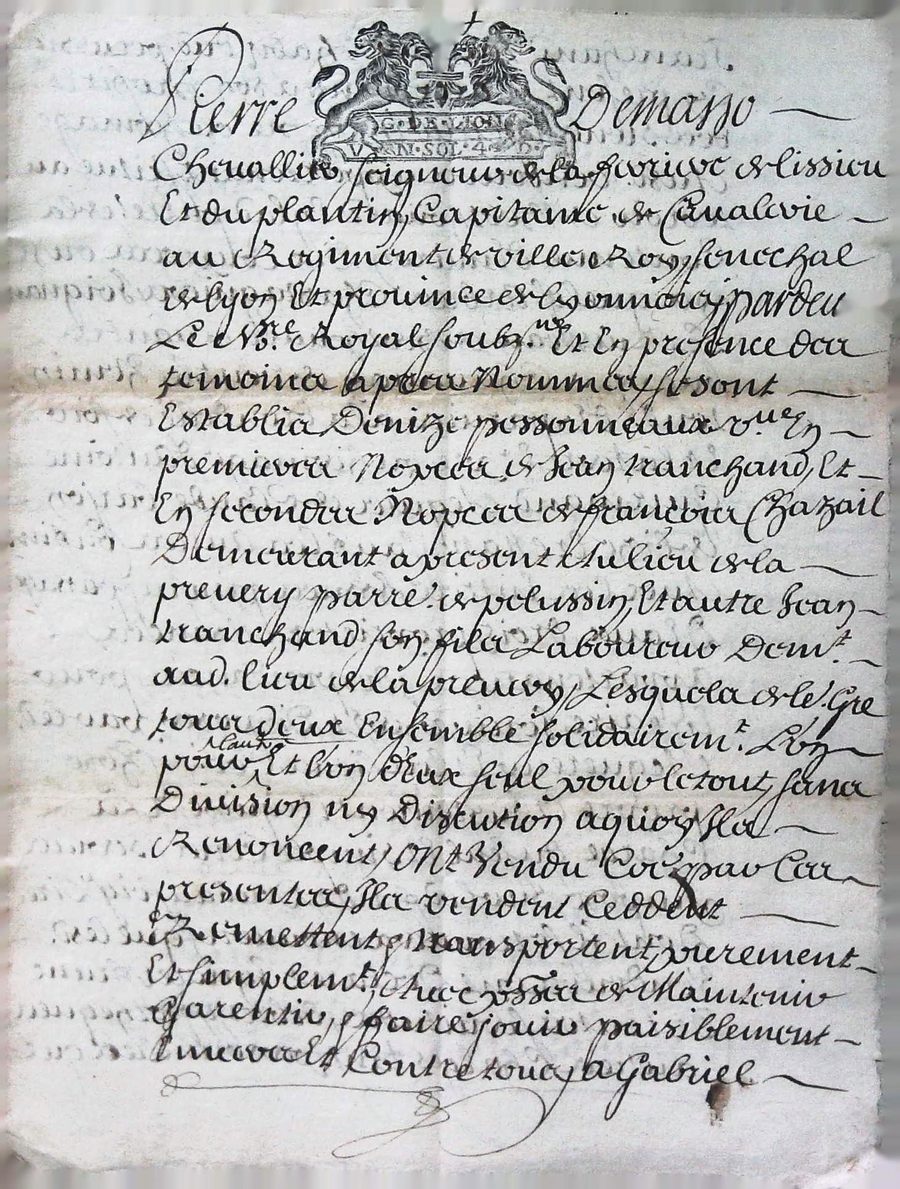 Pierre Demasso
G·DE·LION
VN·SOL·4·D·
Chevallier seigneur de la ferriere de lissieu
Et du plantin, Capitaine de Cavalerie
au Regiment de ville Roy senechal
de lyon Et province de lyonnois, pardeu
Le No.re Royal soubz.né Et En presence des
temoins apres Nommes, se sont
Establis Denize possonneaux v.ue En
premieres Nopces de Jean tranchand, Et
En secondes Nopces de françois Chazail
Demeurant a present Au lieu de la
prevery parre. de pelussin, Et autre Jean
tranchand son fils Laboureur Dem.t
aud. lieu de la prevery, Lesquels de le. Gre
tous deux Ensemble solidairem.t L'on
pour Et l'on d'Eux seul pour le tout, sans
l'autre
Division ny Discution a quoy Ils
Renoncent, Ont Vendu Coe par Ces
presentes, Ils vendent Ceddent
Remettent, transportent, purement
Et simplem.t, Avec pssse de Maintenir
Garentir, & faire jouir paisiblement
Envers Et Contre tous, a Gabriel